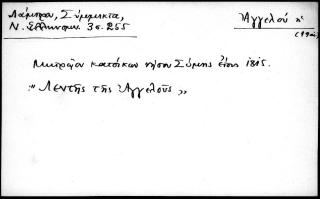 Λάμπρου, Σύμμικτα,
Ν. Ἑλληνομν. 3ο. 255
Ἀγγελού
κατοίκων νήσου Σύμης ἔτους 1815.
"Λεντῆς τῆς Ἀγγελοῦς"